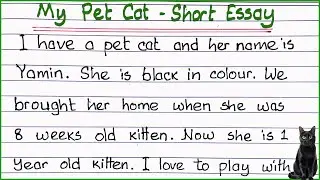 My Pet Cat - Short Essay
I have a pet cat and her name is
Yamin. She is black in colour. We
brought her home when she was
8 weeks old kitten. Now she is 1
year old kitten. I love to play with